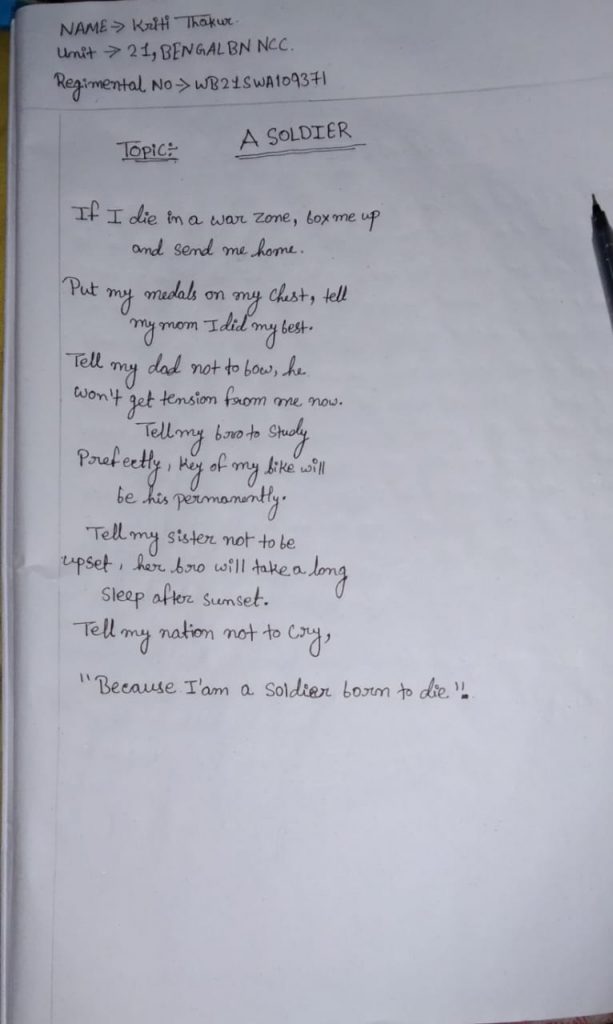 NAME → Kriti Thakur.
Unit → 21, BENGAL BN NCC.
Regimental No → WB21SWA109371
Topic:- A SOLDIER
If I die in a war zone, box me up
and send me home.
Put my medals on my chest, tell
my mom I did my best.
Tell my dad not to bow, he
won't get tension from me now.
Tell my bro to study
Prefectly, key of my bike will
be his permanently.
Tell my sister not to be
upset, her bro will take a long
sleep after sunset.
Tell my nation not to cry,
"Because I'am a soldier born to die".